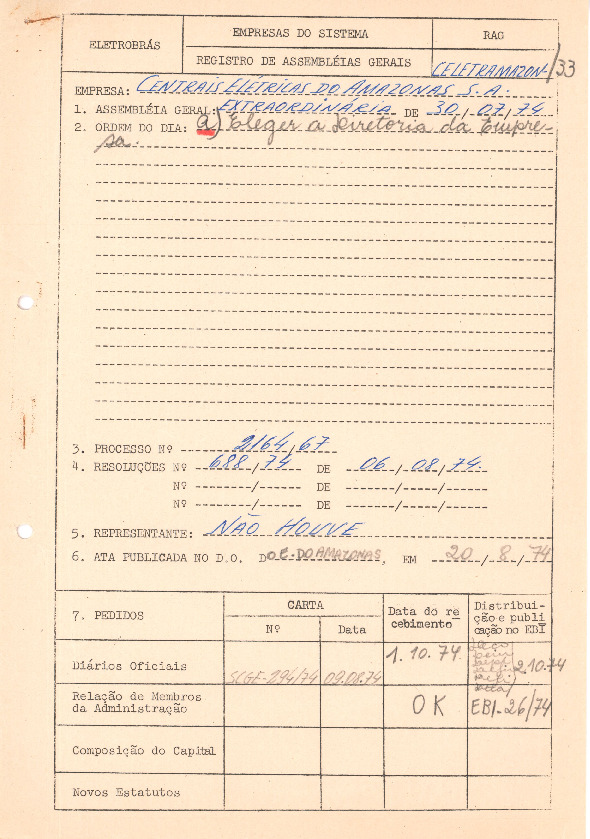 ELETROBRÁS
EMPRESAS DO SISTEMA
RAG
REGISTRO DE ASSEMBLÉIAS GERAIS
CELETRAMAZON-/33
EMPRESA: CENTRAIS ELÉTRICAS DO AMAZONAS S.A.
1. ASSEMBLÉIA GERAL: EXTRAORDINÁRIA DE 30/07/74
2. ORDEM DO DIA: a) Eleger a Diretoria da Empre-
sa.
3. PROCESSO Nº 2164/67
4. RESOLUÇÕES Nº 688/74 DE 06/08/74.
Nº ------/------ DE ------/------/------
Nº ------/------ DE ------/------/------
5. REPRESENTANTE: NÃO HOUVE
6. ATA PUBLICADA NO D.O. DOE. DO AMAZONAS, EM 20/8/74
7. PEDIDOS
CARTA
Nº
Data
Data do re
cebimento
Distribui-
ção e publi
cação no EBI
Diários Oficiais
SCGE-294/74
09.08.74
1.10.74
2.10.74
Relação de Membros
da Administração
OK
EBI-26/74
Composição do Capital
Novos Estatutos